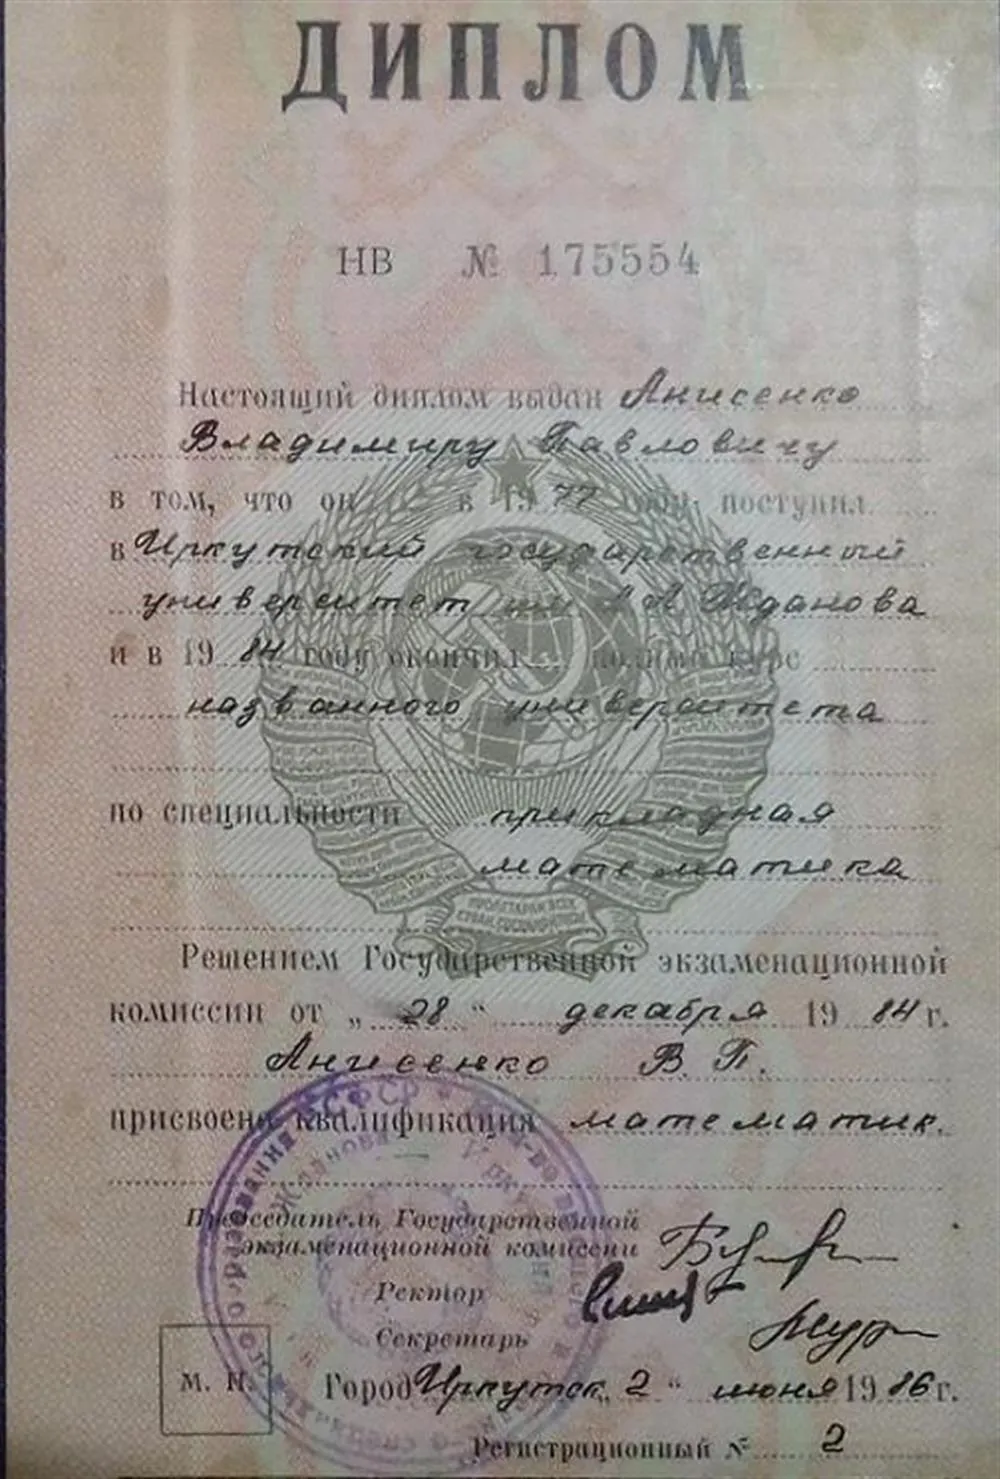 ДИПЛОМ
НВ № 175554
Настоящий диплом выдан Анисенко
Владимиру Павловичу
в том, что он в 1977 году поступил
в Иркутский государственный
университет им А А Жданова
и в 1984 году окончил полный курс
названного университета
по специальности прикладная
математика
Решением Государственной экзаменационной
комиссии от „28“ декабря 1984 г.
Анисенко В. П.
присвоена квалификация математик.
Председатель Государственной
экзаменационной комиссии
Ректор
Секретарь
М. П.
Город Иркутск „2“ июня 1986 г.
Регистрационный № 2